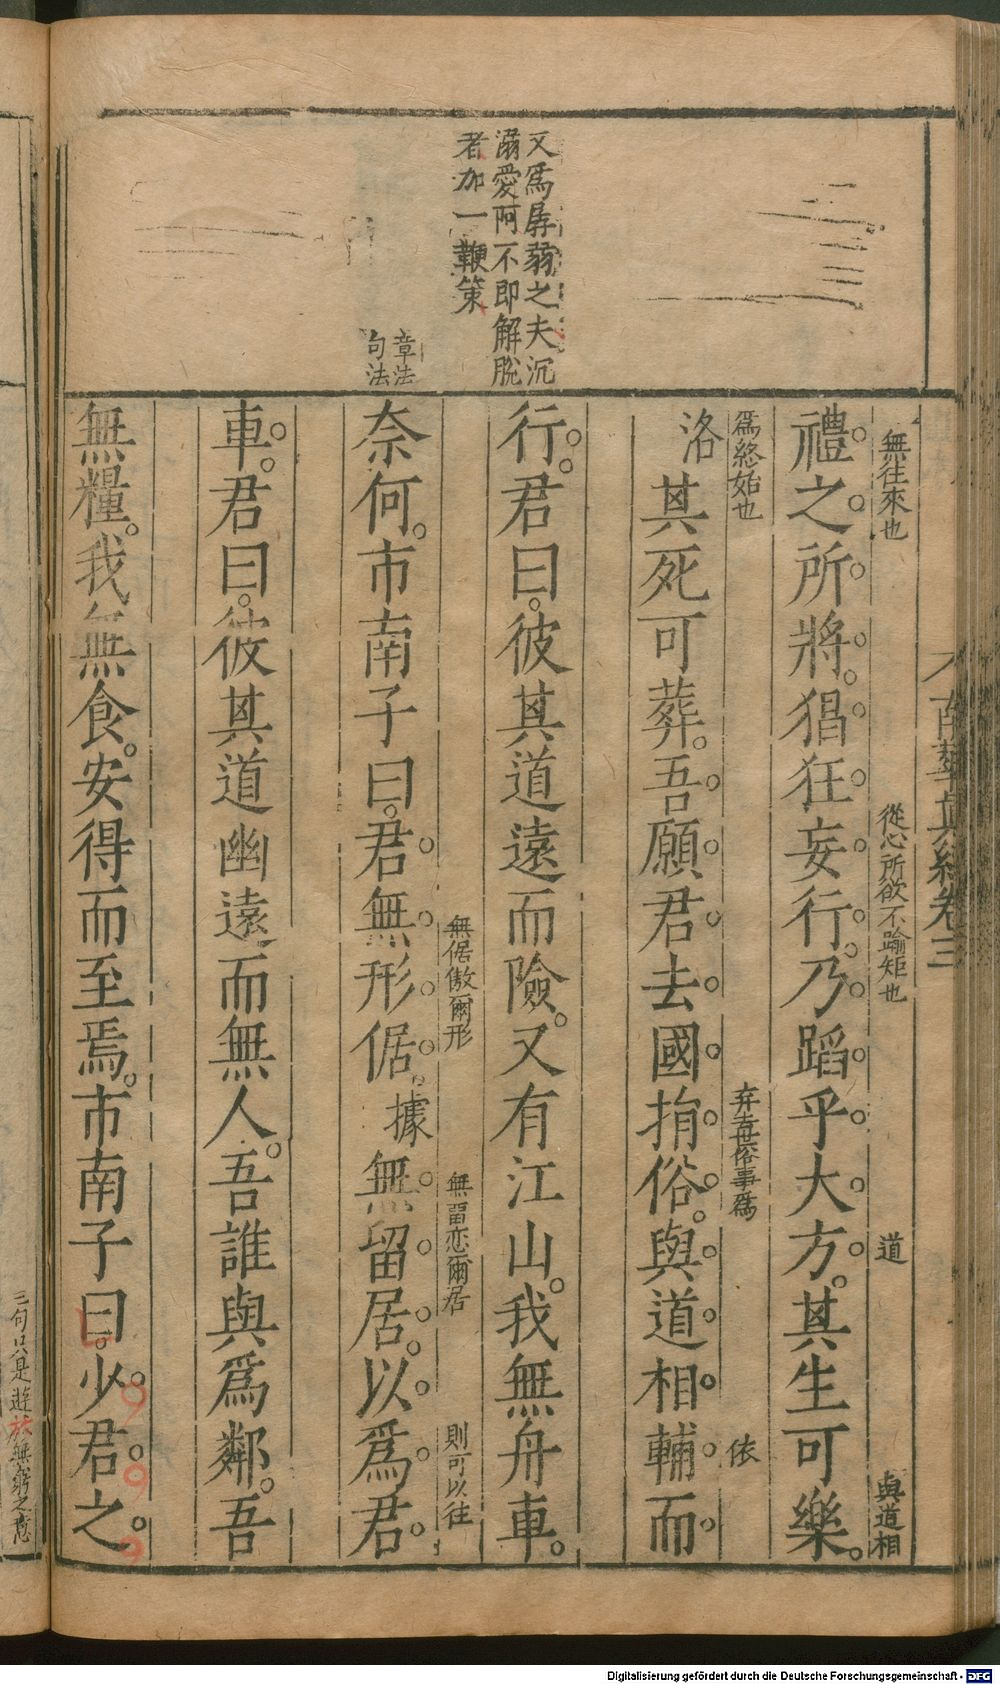 又爲孱弱之夫沉
溺愛阿不即解脫
者加一鞭策
章法
句法
南華眞經卷三
無往來也
從心所欲不踰矩也
道
與道相
禮之所將。猖狂妄行。乃蹈乎大方。其生可樂。
爲終始也
弃去世俗事爲
依
洛其死可葬。吾願君去國捐俗。與道相輔而
行。君曰。彼其道遠而險。又有江山。我無舟車。
無倨傲爾形
無畱恋爾居
則可以往
奈何。市南子曰。君無形倨。據無留居。以爲君
車。君曰。彼其道幽遠而無人。吾誰與爲鄰。吾
無糧。我無食。安得而至焉。市南子曰。少君之
三句只是遊於無窮之意
Digitalisierung gefördert durch die Deutsche Forschungsgemeinschaft - DFG